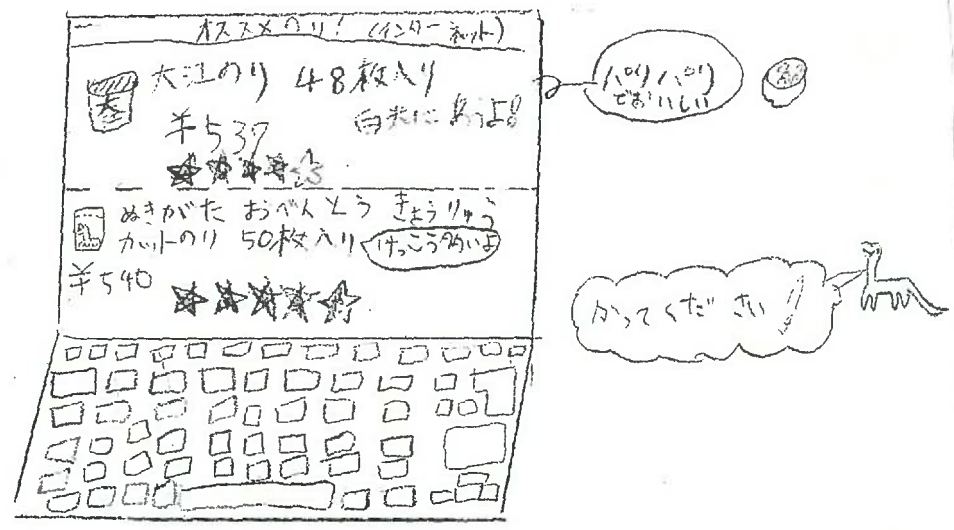 オススメのり! (インターネット)
大江のり 48枚入り
大
¥537
白米にあうよ!
パリパリ
でおいしい
ぬきがた おべんとう きょうりゅう
カットのり 50枚入り
けっこう多いよ
¥540
かってください!